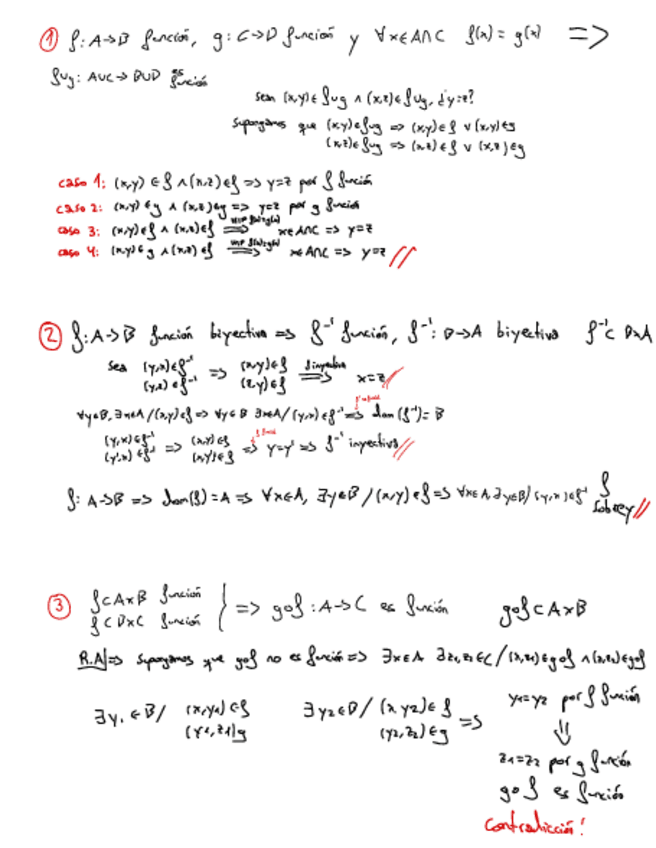 ① f: A→B función, g: C→D función y ∀x∈A∩C f(x) = g(x) ⟹
f∪g: A∪C → B∪D es función
Sean (x,y)∈ f∪g ∧ (x,z)∈ f∪g, ¿y=z?
Supongamos que (x,y)∈f∪g ⟹ (x,y)∈f ∨ (x,y)∈g
(x,z)∈f∪g ⟹ (x,z)∈f ∨ (x,z)∈g
caso 1: (x,y) ∈ f ∧ (x,z) ∈ f ⟹ y=z por f función
caso 2: (x,y) ∈ g ∧ (x,z) ∈ g ⟹ y=z por g función
caso 3: (x,y)∈f ∧ (x,z)∈f ⟹ HIP f(x)=g(x) x∈A∩C ⟹ y=z
caso 4: (x,y)∈g ∧ (x,z)∈f ⟹ HIP f(x)=g(x) x∈A∩C ⟹ y=z //
② f: A→B función biyectiva ⟹ f⁻¹ función, f⁻¹: B→A biyectiva f⁻¹⊂ B×A
Sea (y,x)∈f⁻¹ ⟹ (x,y)∈f ⟹ f inyectiva x=z //
(y,z)∈f⁻¹ (z,y)∈f
∀y∈B, ∃x∈A/(x,y)∈f ⟹ ∀y∈B ∃x∈A/(y,x)∈f⁻¹ ⟹ dom(f⁻¹)= B
(y,x)∈f⁻¹ ⟹ (x,y)∈f ⟹ y=y' ⟹ f⁻¹ inyectiva //
(y',x)∈f⁻¹ (x,y')∈f
f: A→B ⟹ dom(f)=A ⟹ ∀x∈A, ∃y∈B/(x,y)∈f ⟹ ∀x∈A, ∃y∈B/(y,x)∈f⁻¹ f sobrey //
③ f⊂A×B función } ⟹ g∘f: A→C es función g∘f⊂A×B
f⊂B×C función
R.A ⟹ Supongamos que gof no es función ⟹ ∃x∈A ∃z₁,z₂∈C/(x,z₁)∈gof ∧(x,z₂)∈gof
∃y₁∈B/ (x,y₁)∈f ∃y₂∈B/ (x,y₂)∈f ⟹ y₁=y₂ por f función
(y₁,z₁)g (y₂,z₂)∈g ⇓
z₁=z₂ por g función
gof es función
Contradicción!